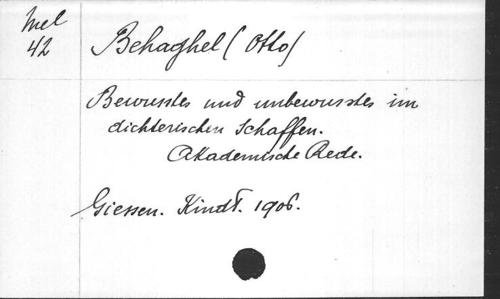 Mel
42
Behaghel (Otto)
Bewusstes und unbewusstes im
dichterischen Schaffen.
Akademische Rede.
Giessen. Kindt. 1906.